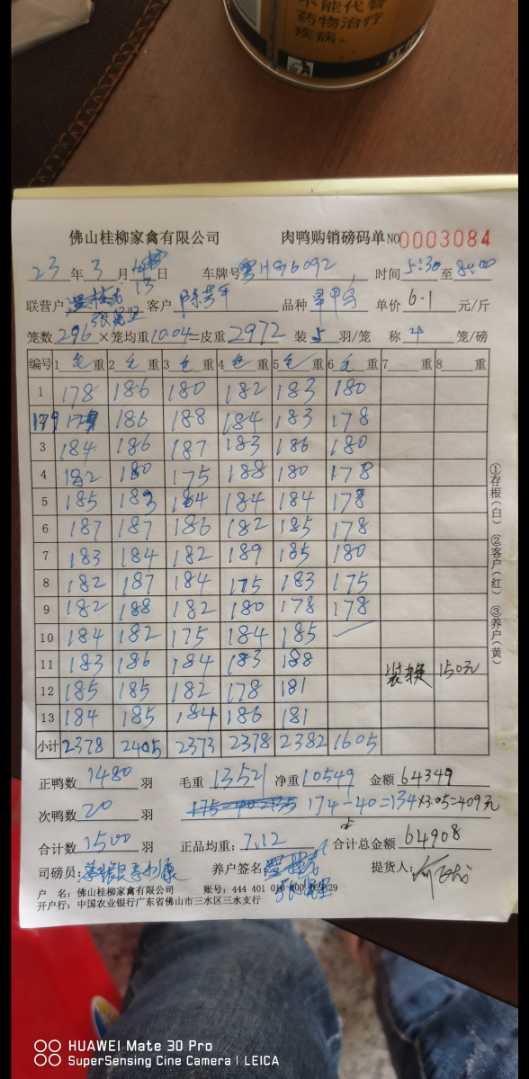 不能代替
药物治疗
疾病。
佛山桂柳家禽有限公司 肉鸭购销磅码单 NO0003084
23 年 3 月 13 日 车牌号 6092 时间 5:30 至 8:00
联营户 客户 品种 单价 6.1 元/斤
笼数 296 × 笼均重 10.04 =皮重 2972 装 5 羽/笼 称 4 笼/磅
编号 1 毛 重 2 毛 重 3 毛 重 4 毛 重 5 毛 重 6 毛 重 7 重 8 重
1 178 186 180 182 183 180
179 186 188 184 183 178
3 184 186 187 183 186 180
4 182 180 175 188 180 178
5 185 183 184 184 184 178
6 187 187 186 182 185 178
7 183 184 182 189 185 180
8 182 187 184 175 183 175
9 182 188 182 180 178 178
10 184 182 175 184 185
11 183 186 184 183 188 装换 150元
12 185 185 182 178 181
13 184 185 184 186 181
小计 2378 2405 2373 2378 2382 1605
正鸭数 1480 羽 毛重 13521 净重 10549 金额 64349
次鸭数 20 羽 174-40=134×3.05=409元
合计数 1500 羽 正品均重: 7.12 合计总金额 64908
司磅员: 养户签名: 提货人:
户 名: 佛山桂柳家禽有限公司 账号: 444 401 01
开户行: 中国农业银行广东省佛山市三水区三水支行
①存根(白) ②客户(红) ③养户(黄)
HUAWEI Mate 30 Pro
SuperSensing Cine Camera | LEICA